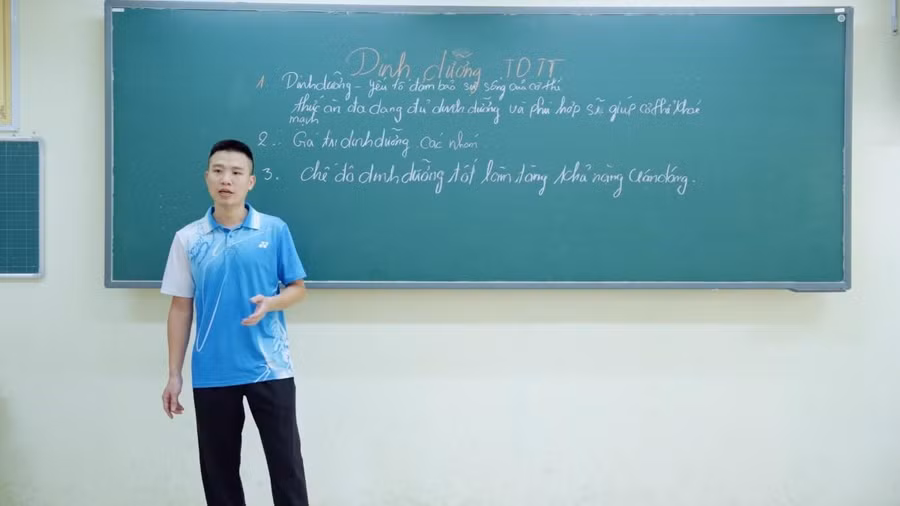 Dinh dưỡng TDTT
1. Dinh dưỡng - yếu tố đảm bảo sự sống của cơ thể
thức ăn đa dạng đủ dinh dưỡng và phù hợp sẽ giúp cơ thể khoẻ
mạnh
2. Giá trị dinh dưỡng các nhóm
3. Chế độ dinh dưỡng tốt làm tăng khả năng vận động.